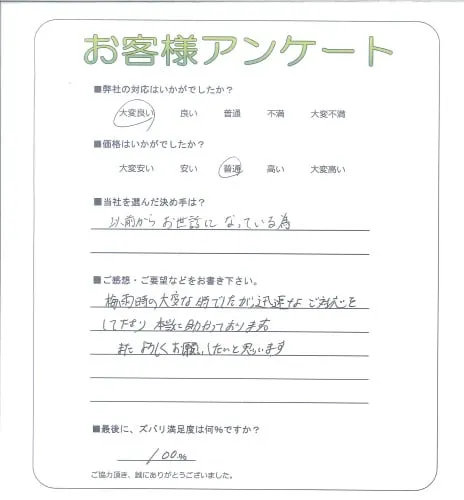 お客様アンケート
■弊社の対応はいかがでしたか？
大変良い 良い 普通 不満 大変不満
■価格はいかがでしたか？
大変安い 安い 普通 高い 大変高い
■当社を選んだ決め手は？
以前からお世話になっている為
■ご感想・ご要望などをお書き下さい。
梅雨時の大変な時でしたが迅速なご対応を
して下さり 本当に助かっております
また よろしくお願いしたいと思います
■最後に、ズバリ満足度は何%ですか？
100%
ご協力頂き、誠にありがとうございました。